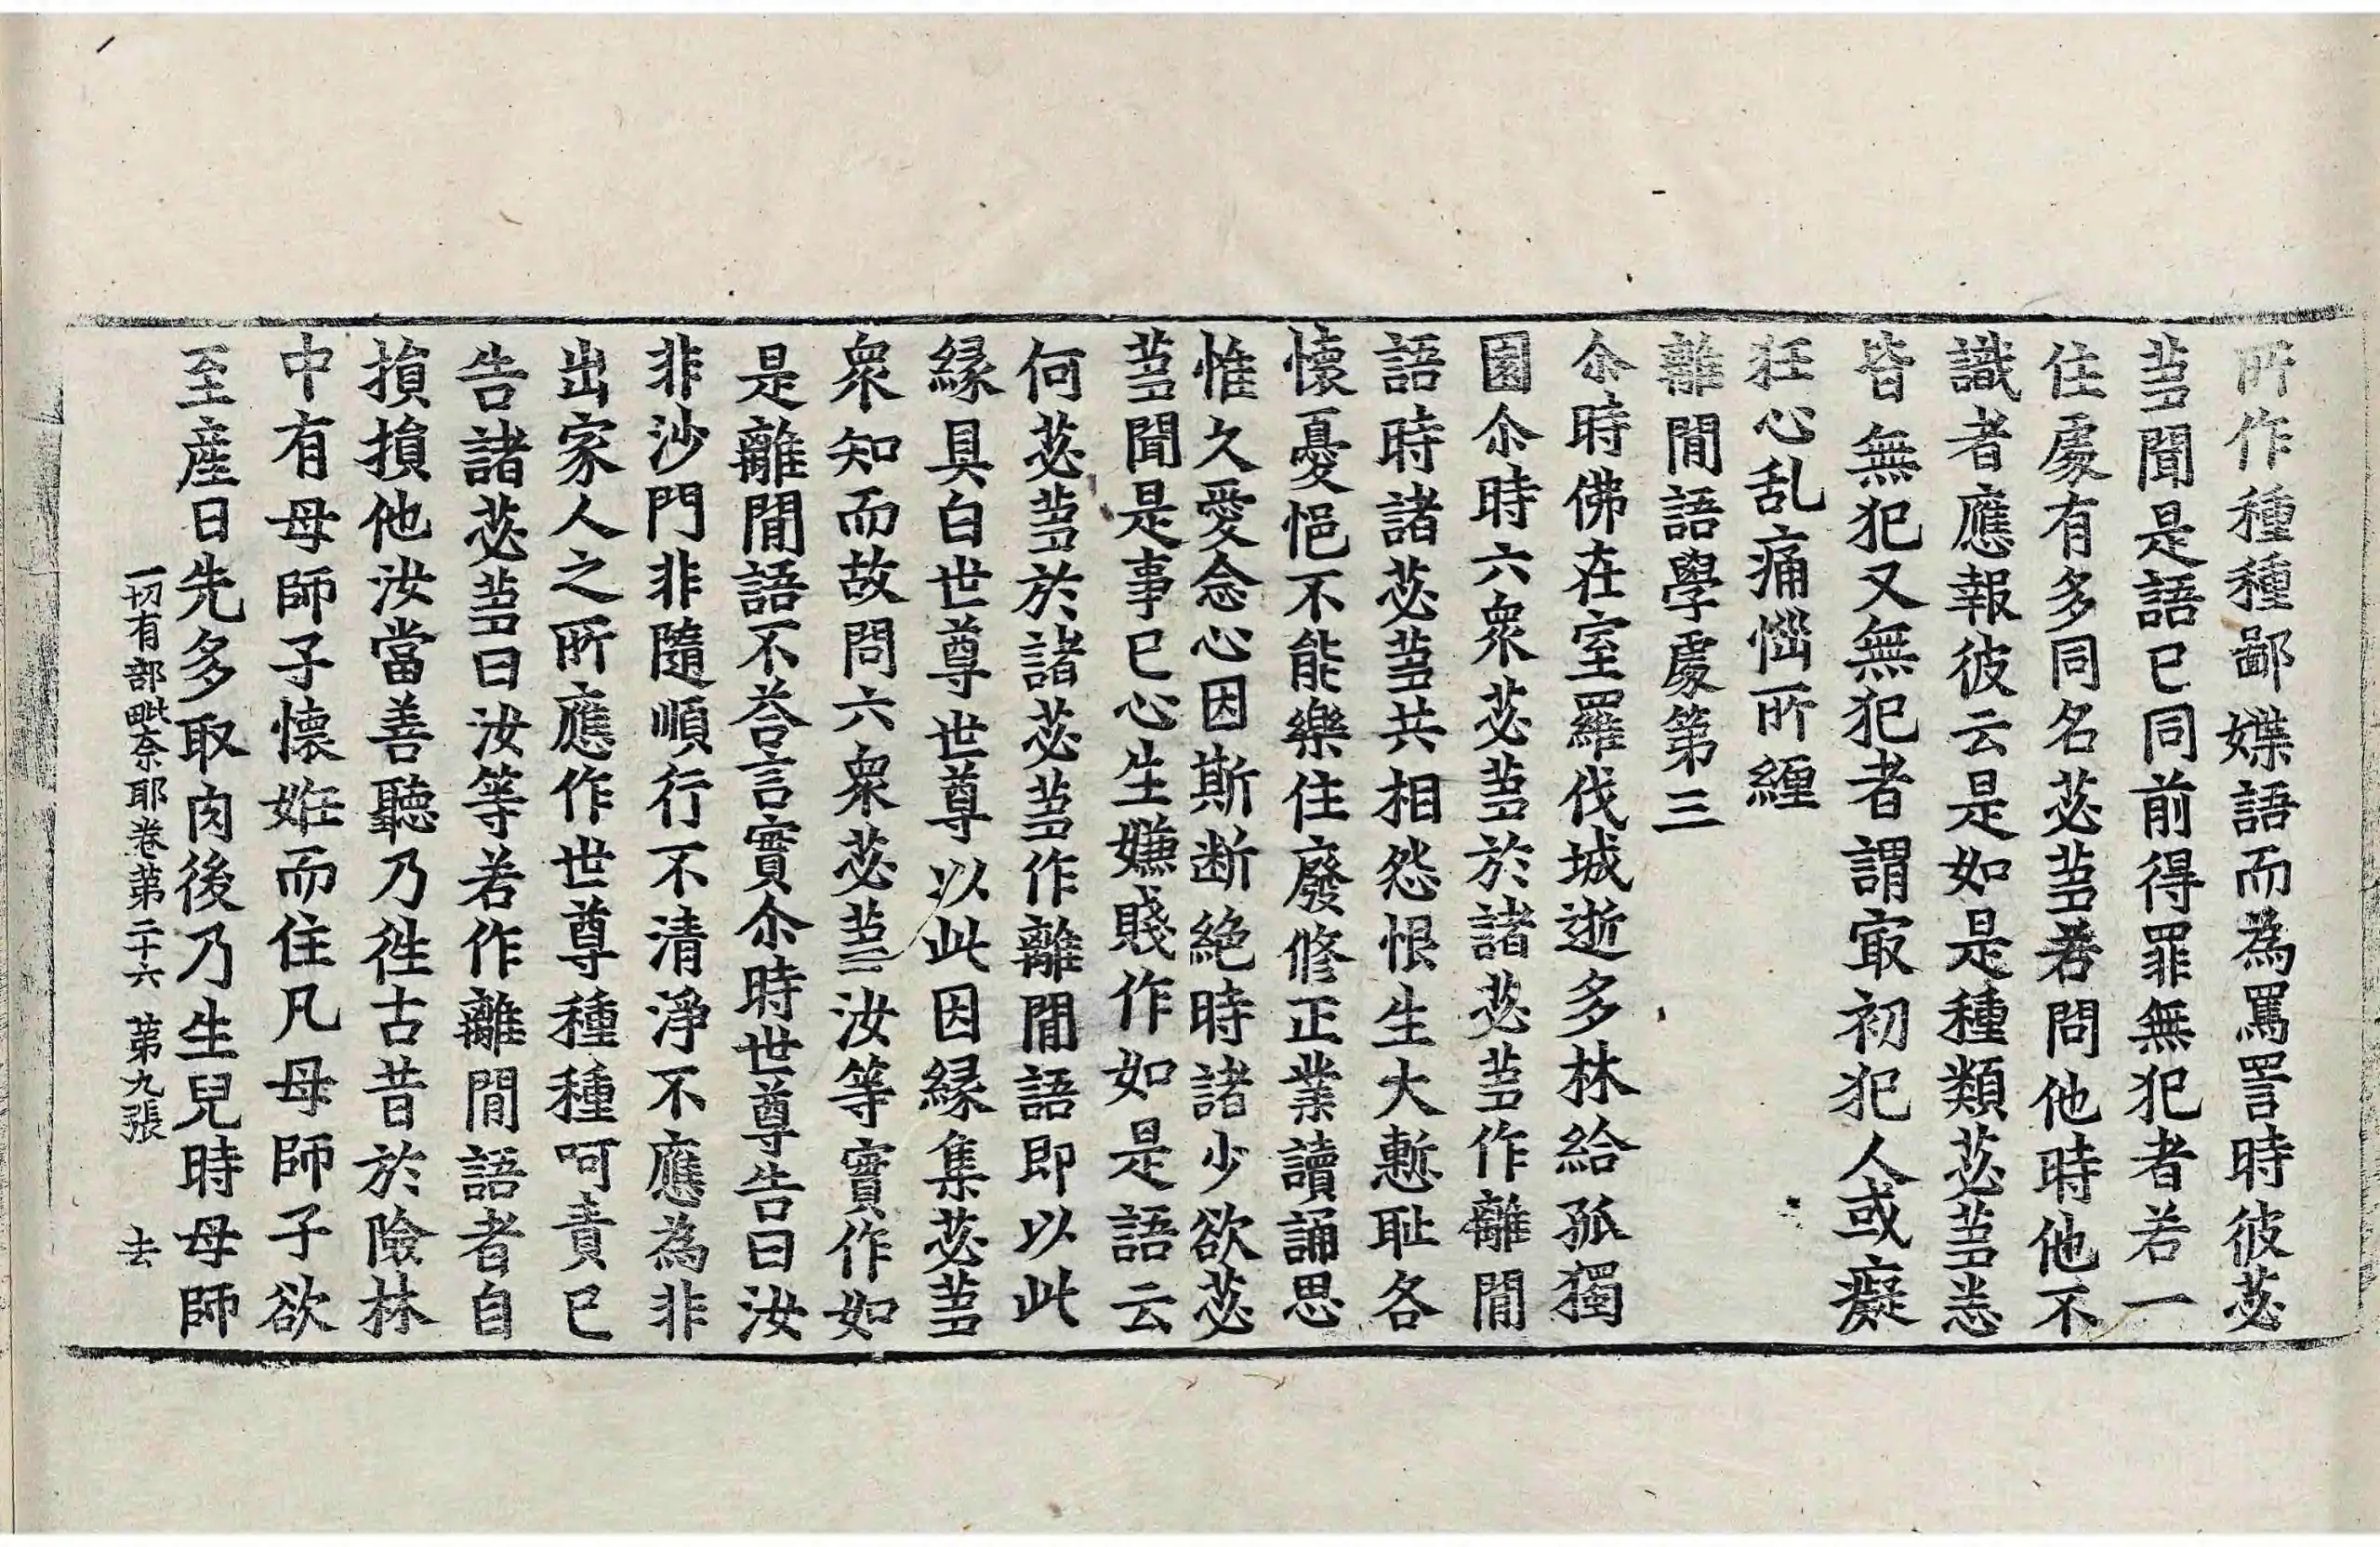 所作種種鄙媟語而為罵詈時彼苾
蒭聞是語已同前得罪無犯者若一
住處有多同名苾蒭若問他時他不
識者應報彼云是如是種類苾蒭悉
皆無犯又無犯者謂㝡初犯人或癡
狂心乱痛惱所纏
離間語學處第三
尒時佛在室羅伐城逝多林給孤獨
園尒時六衆苾蒭於諸苾蒭作離間
語時諸苾蒭共相怨恨生大慙耻各
懷憂悒不能樂住廢修正業讀誦思
惟久愛念心因斯断絶時諸少欲苾
蒭聞是事已心生嫌賤作如是語云
何苾蒭於諸苾蒭作離間語即以此
緣具白世尊世尊以此因緣集苾蒭
衆知而故問六衆苾蒭汝等實作如
是離間語不荅言實尒時世尊告曰汝
非沙門非隨順行不清淨不應為非
出家人之所應作世尊種種呵責已
告諸苾蒭曰汝等若作離間語者自
損損他汝當善聽乃徃古昔於險林
中有母師子懷姙而住凡母師子欲
至産日先多取肉後乃生兒時母師
一切有部毗奈耶卷第二十六 第九張 去